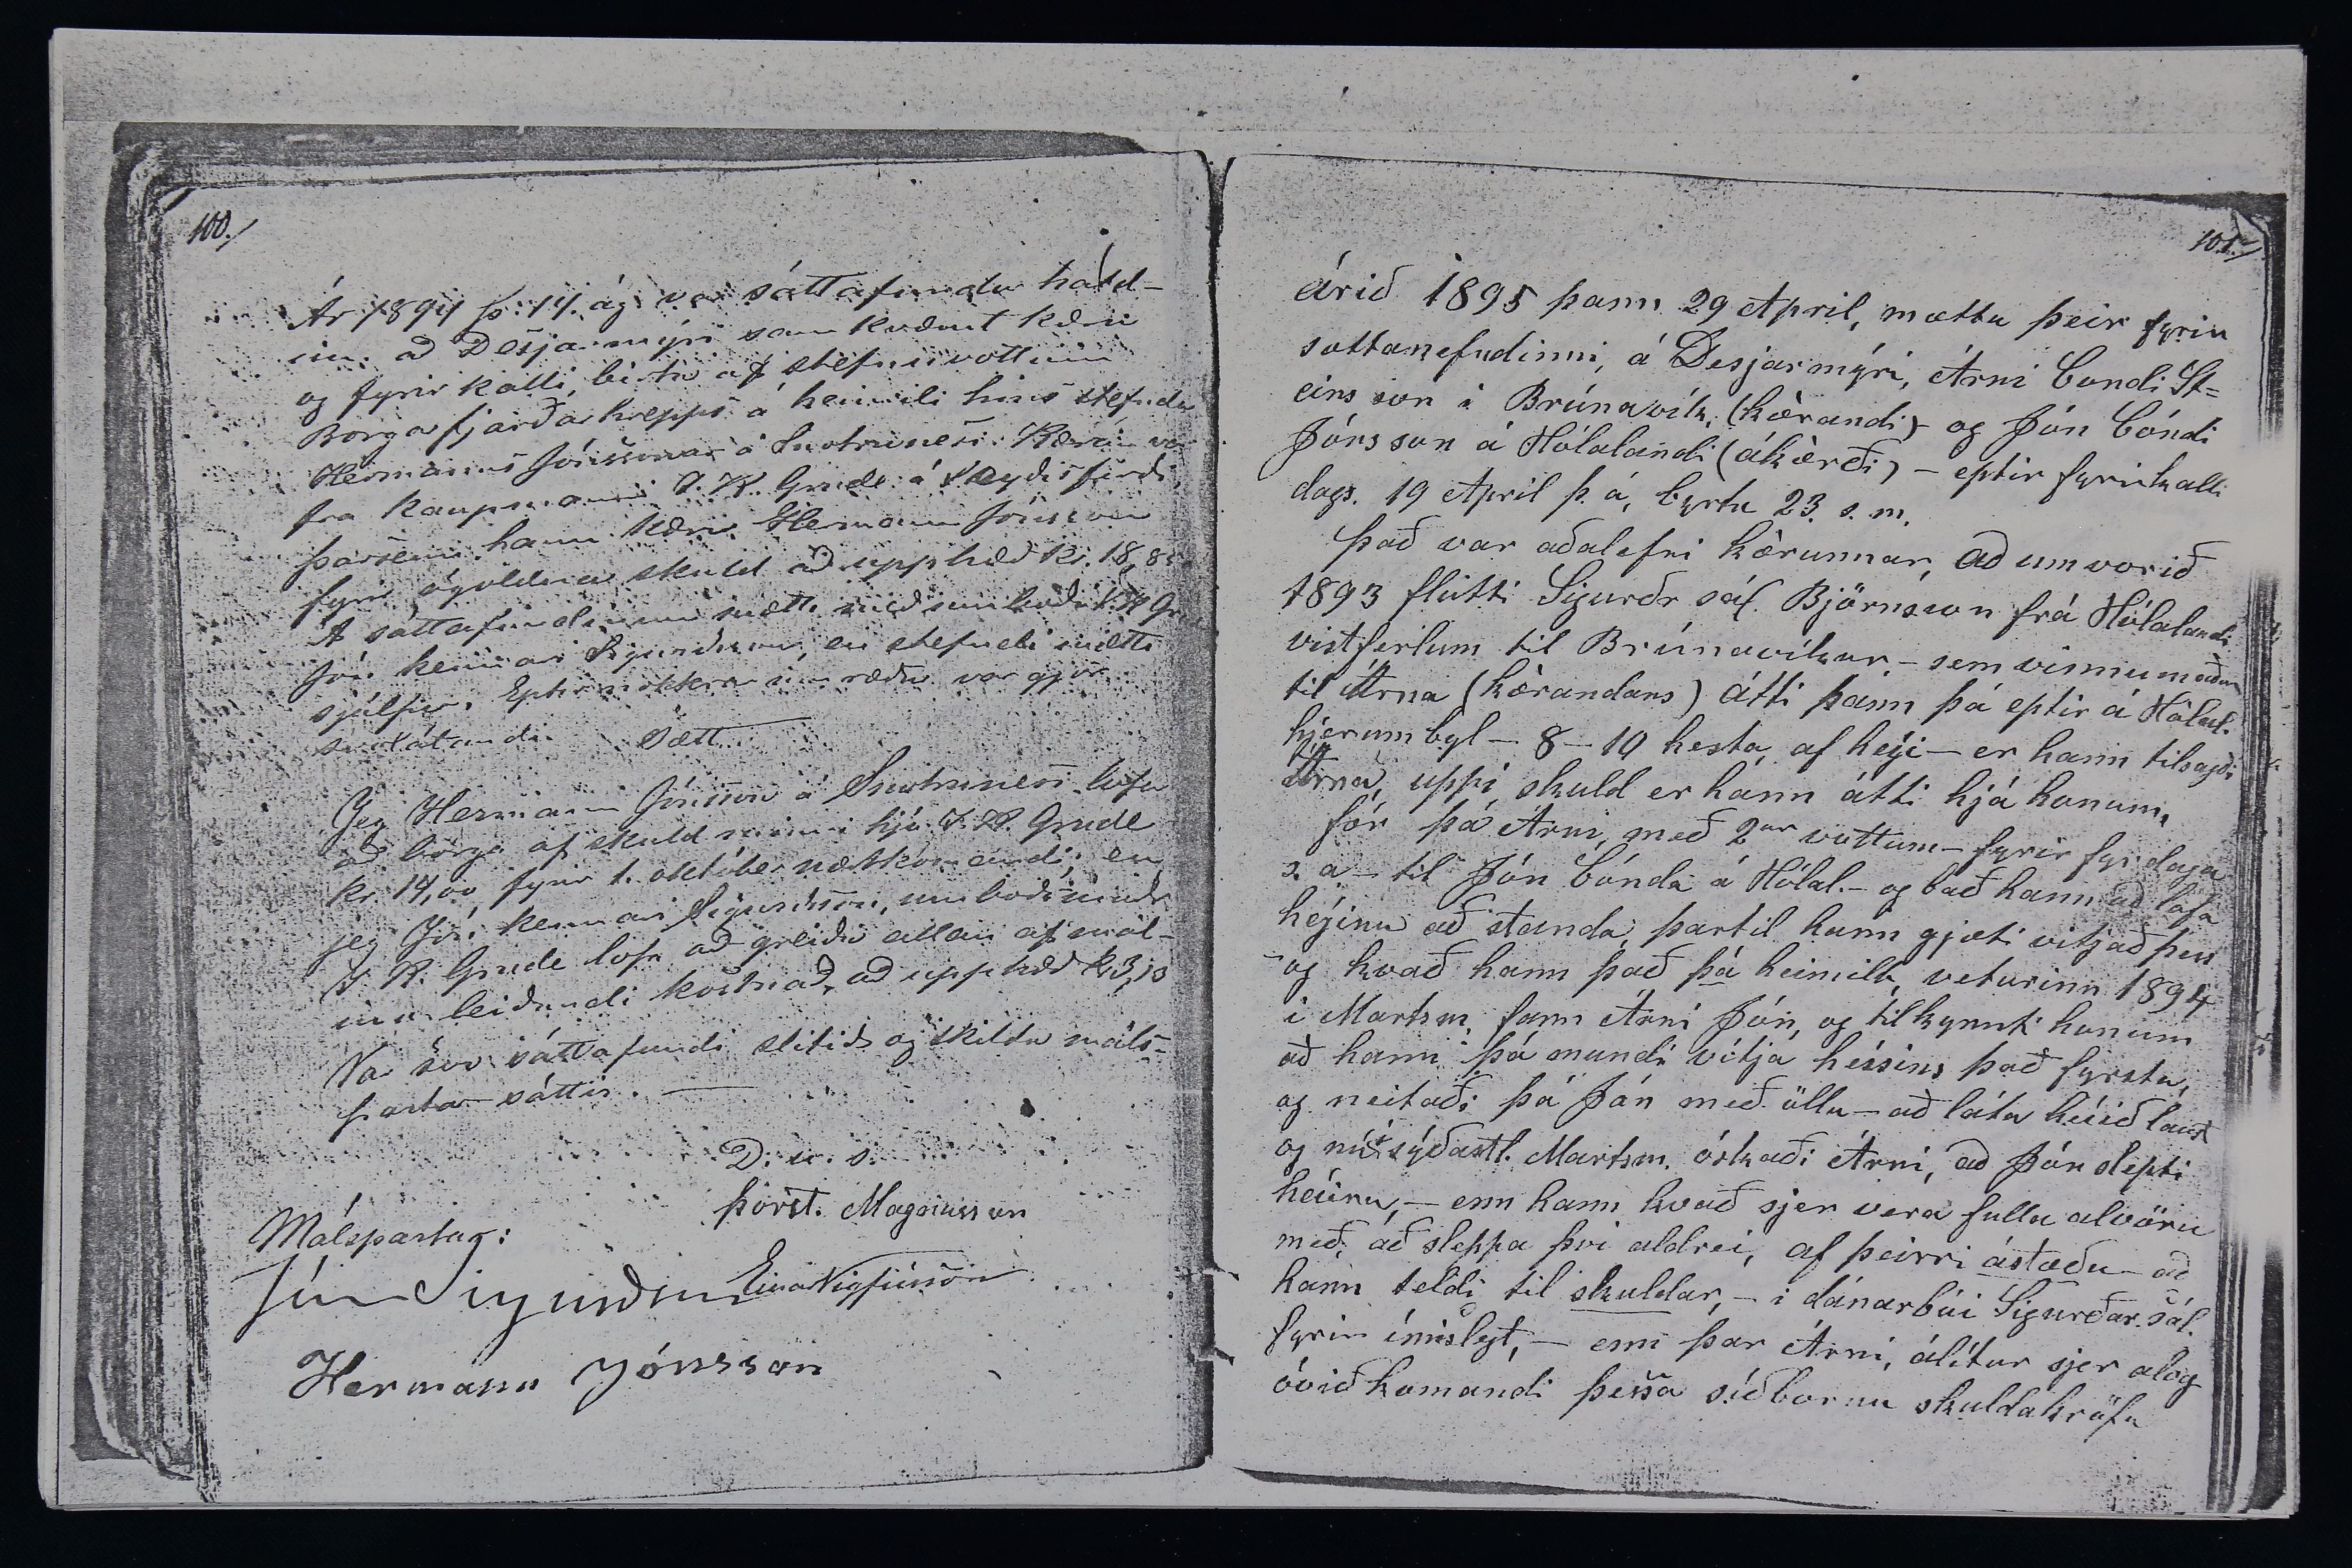 100./
Ár 1894 þ: 14. ág: var sáttafundur hald-
inn að Desjarmýri samkvæmt kæru
og fyrirkalli, birtu af stefnuvottum
Borgarfjarðarhrepps á heimili hins stefnda
Hermanns Jónssonar á Snotrunesi. Kæran var
frá kaupmanni Grude á Seyðisfirði,
þarsem hann kærir Hermann Jónsson
fyrir ógoldna skuld að upphæð kr. 18,8
Á sáttafundinum mætti með umboði
Jón kennari Sigurðsson, en stefndi mætti
sjálfur. Eptir nokkrar umræður var gjör
svolátandi Sætt.
Jeg Hermann Jónsson á Snotrunesi lofa
að borga af skuld minni hjá Grude
kr. 14,00 fyrir 1. október næstkomandi; en
jeg Jón kennari Sigurðsson, umboðsmaðr
Grude lofa að greiða allan af mál-
inu leiðandi kostnað, að upphæð kr 3,10
Var svo sáttafundi slitið og skildu máls-
partar sáttir.
D. u. s.
Þorst. Magnússon
Málspartar:
Einar Vigfússon
Jón Sigurðsson
Hermann Jónsson
101./
árið 1895 þann 29 April, mættu þeir fyrir
sáttanefndinni, á Desjarmýri, Árni bondi St=
einsson i Brúnavík, (kærandi) - og Jón bóndi
Jónsson á Hólalandi (ákærði) - eptir fyrirkalli
dags. 19 April þ. á, byrtu 23. s. m.
Það var aðalefni kærunnar, að um vorið
1893 flutti Sigurðr sál. Björnsson frá Hólalandi
vistferlum til Brúnavíkur - sem vinnumaður
til Árna (kærandans) átti hann þá eptir á Hólal.
hjerumbyl - 8 - 10 hesta af heyi - er hann tilsagði
Árna, uppí skuld er hann átti hjá honum.
fór þá Árni, með 2ur vottum - fyrir fardaga
s. a - til Jón bónda á Hólal. - og bað hann að lofa
heyinu að standa, þartil hann gjæti vitjað þess
- og kvað hann það þá heimilt, veturinn 1894
i Martsm. fann Árni Jón, og tilkynnti honum
að hann þá mundi vitja heisins það fyrsta,
og neitaði þá Jón með öllu - að láta heiið laust
og nú sýðastl. Martsm. óskaði Árni, að Jón slepti
heiinu, - enn hann kvað sjer vera fulla alvöru
með, að sleppa þvi aldrei, af þeirri ástæðu - að
hann teldi til skuldar, - i dánarbúi Sigurðar sál.
fyrir ímislegt, - enn þar Árni, álitur sjer alog
óviðkomandi þessa síðbornu skuldakröfu